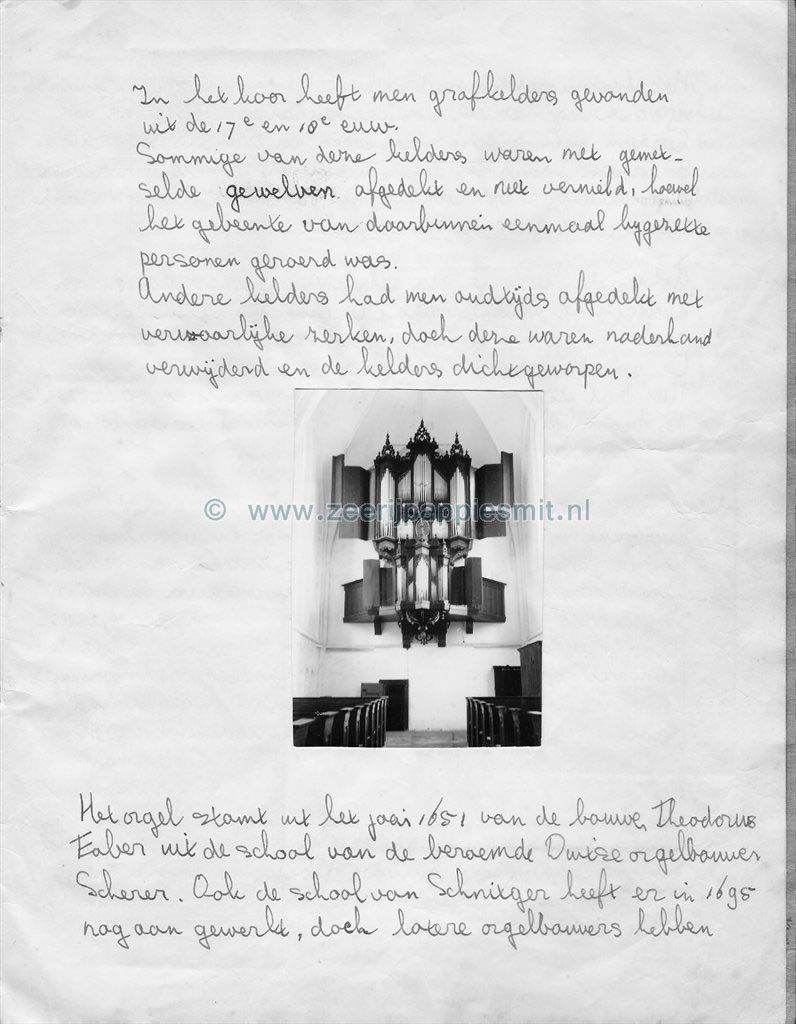 In het koor heeft men grafkelders gevonden
uit de 17e en 18e euw.
Sommige van deze kelders waren met gemet-
selde gewelven afgedekt en niet vernield, hoewel
het gebeente van daarbinnen eenmaal bygezette
personen geroerd was.
Andere kelders had men oudtijds afgedekt met
verwaarlijke zerken, doch deze waren naderhand
verwijderd en de kelders dichtgeworpen.
© www.zeerijpappiesmit.nl
Het orgel stamt uit het jaar 1651 van de bouwer Theodorus
Faber uit de school van de beroemde Duitse orgelbouwer
Scherer. Ook de school van Schnitger heeft er in 1695
nog aan gewerkt, doch latere orgelbouwers hebben